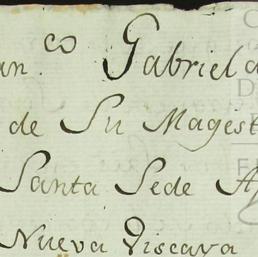 an.co Gabriel d
de Su Magest
Santa Sede A
Nueva Viscaya